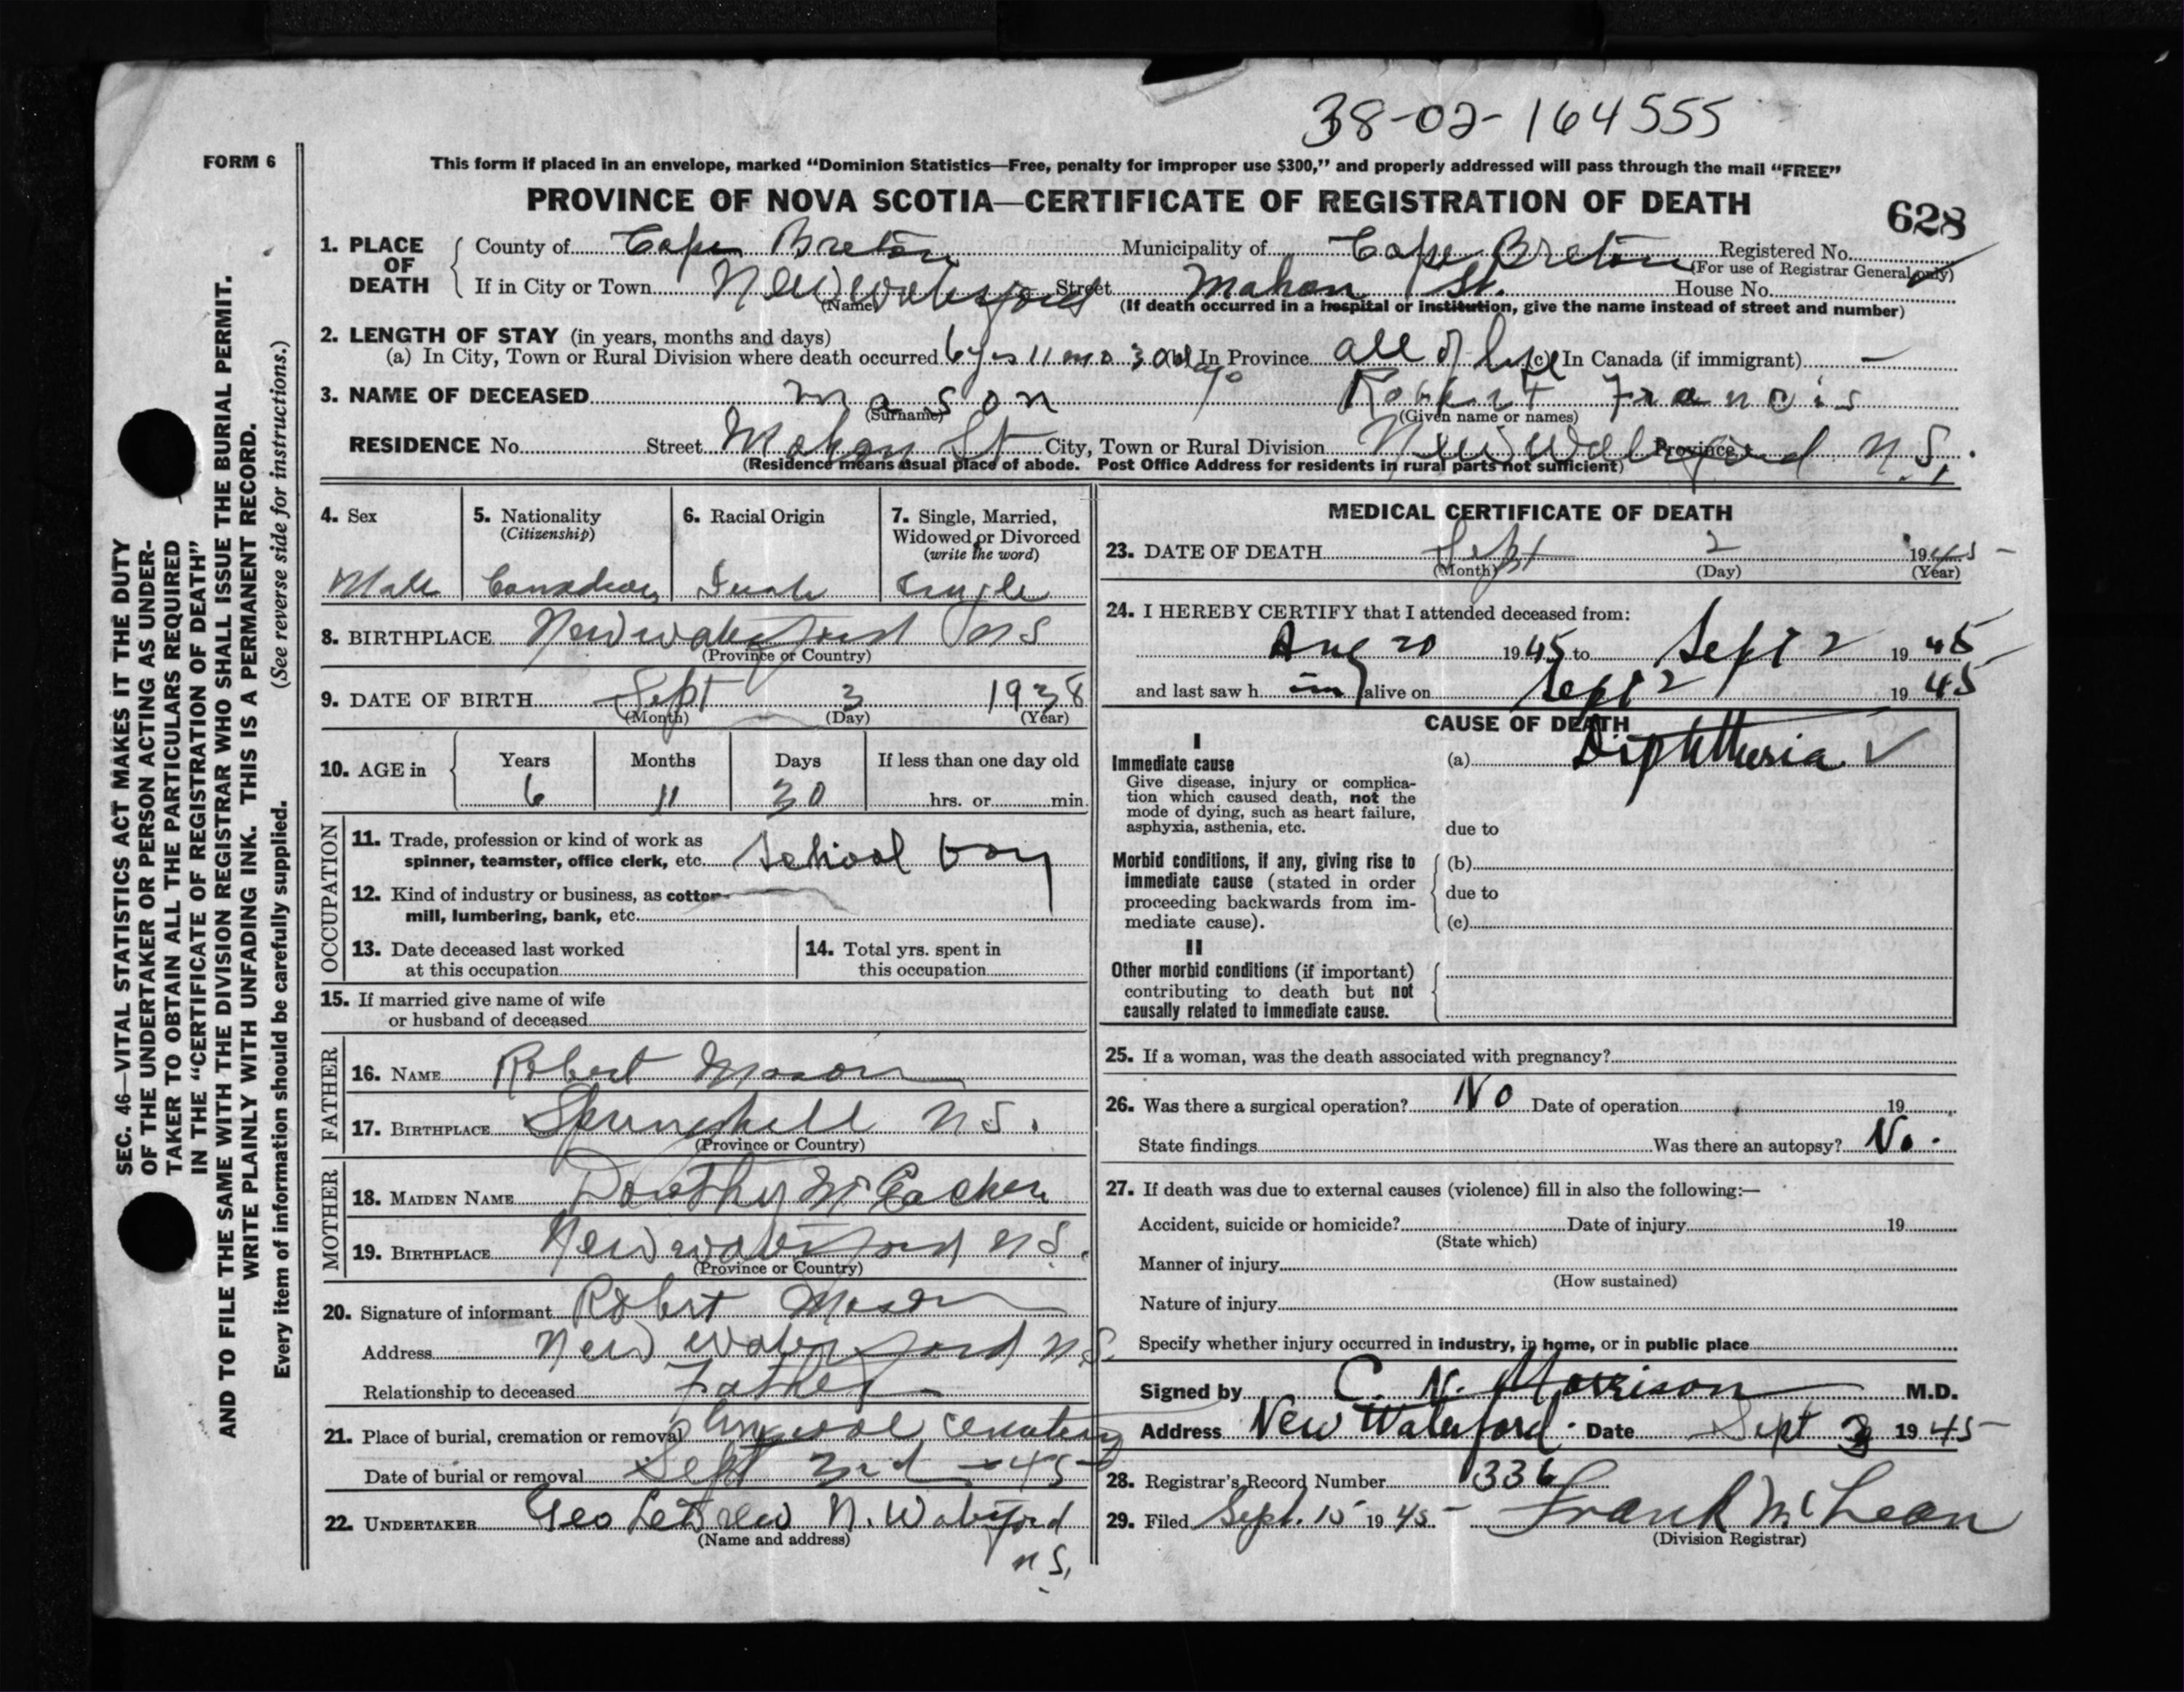 38-02-164555
FORM 6
This form if placed in an envelope, marked “Dominion Statistics—Free, penalty for improper use $300,” and properly addressed will pass through the mail “FREE”
PROVINCE OF NOVA SCOTIA—CERTIFICATE OF REGISTRATION OF DEATH
628
1. PLACE OF DEATH
County of Cape Breton Municipality of Cape Breton Registered No.
(For use of Registrar General only)
If in City or Town New Waterford Street Mahon St. House No.
(Name) (If death occurred in a hospital or institution, give the name instead of street and number)
2. LENGTH OF STAY (in years, months and days)
(a) In City, Town or Rural Division where death occurred 6 yrs 11 mo 30 days In Province all of life (c) In Canada (if immigrant) —
3. NAME OF DECEASED Mason Robert Francis
(Surname) (Given name or names)
RESIDENCE No. Street Mahon St City, Town or Rural Division New Waterford Province N.S.
(Residence means usual place of abode. Post Office Address for residents in rural parts not sufficient)
4. Sex
Male
5. Nationality
(Citizenship)
Canadian
6. Racial Origin
Irish
7. Single, Married,
Widowed or Divorced
(write the word)
Single
8. BIRTHPLACE New Waterford N S
(Province or Country)
9. DATE OF BIRTH Sept 3 1938
(Month) (Day) (Year)
10. AGE in
Years Months Days If less than one day old
6 11 30 hrs. or min.
OCCUPATION
11. Trade, profession or kind of work as
spinner, teamster, office clerk, etc. School boy
12. Kind of industry or business, as cotton
mill, lumbering, bank, etc.
13. Date deceased last worked
at this occupation
14. Total yrs. spent in
this occupation
15. If married give name of wife
or husband of deceased
FATHER
16. NAME Robert Mason
17. BIRTHPLACE Springhill N S.
(Province or Country)
MOTHER
18. MAIDEN NAME Dorothy McEachen
19. BIRTHPLACE New Waterford N S.
(Province or Country)
20. Signature of informant Robert Mason
Address New Waterford N.S.
Relationship to deceased Father
21. Place of burial, cremation or removal cemetery
Date of burial or removal Sept 3rd - 45
22. UNDERTAKER Geo LeDrew N. Waterford
(Name and address)
N S,
MEDICAL CERTIFICATE OF DEATH
23. DATE OF DEATH Sept 2 1945
(Month) (Day) (Year)
24. I HEREBY CERTIFY that I attended deceased from:
Aug 20 1945 to Sept 2 1945
and last saw h im alive on Sept 2 1945
CAUSE OF DEATH
I
Immediate cause
Give disease, injury or complica-
tion which caused death, not the
mode of dying, such as heart failure,
asphyxia, asthenia, etc.
(a) Diphtheria ✓
due to
Morbid conditions, if any, giving rise to
immediate cause (stated in order
proceeding backwards from im-
mediate cause).
(b)
due to
(c)
II
Other morbid conditions (if important)
contributing to death but not
causally related to immediate cause.
25. If a woman, was the death associated with pregnancy?
26. Was there a surgical operation? No Date of operation 19
State findings Was there an autopsy? No.
27. If death was due to external causes (violence) fill in also the following:—
Accident, suicide or homicide? Date of injury 19
(State which)
Manner of injury
(How sustained)
Nature of injury
Specify whether injury occurred in industry, in home, or in public place
Signed by C. N. Morrison M.D.
Address New Waterford. Date Sept 3 1945
28. Registrar's Record Number 336
29. Filed Sept. 15 1945 Frank McLean
(Division Registrar)
SEC. 46—VITAL STATISTICS ACT MAKES IT THE DUTY
OF THE UNDERTAKER OR PERSON ACTING AS UNDER-
TAKER TO OBTAIN ALL THE PARTICULARS REQUIRED
IN THE “CERTIFICATE OF REGISTRATION OF DEATH”
AND TO FILE THE SAME WITH THE DIVISION REGISTRAR WHO SHALL ISSUE THE BURIAL PERMIT.
WRITE PLAINLY WITH UNFADING INK. THIS IS A PERMANENT RECORD.
Every item of information should be carefully supplied. (See reverse side for instructions.)